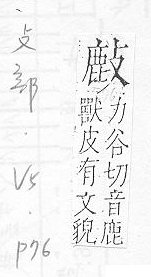 力谷切音鹿
獸皮有文貌
攴部. V5. p76